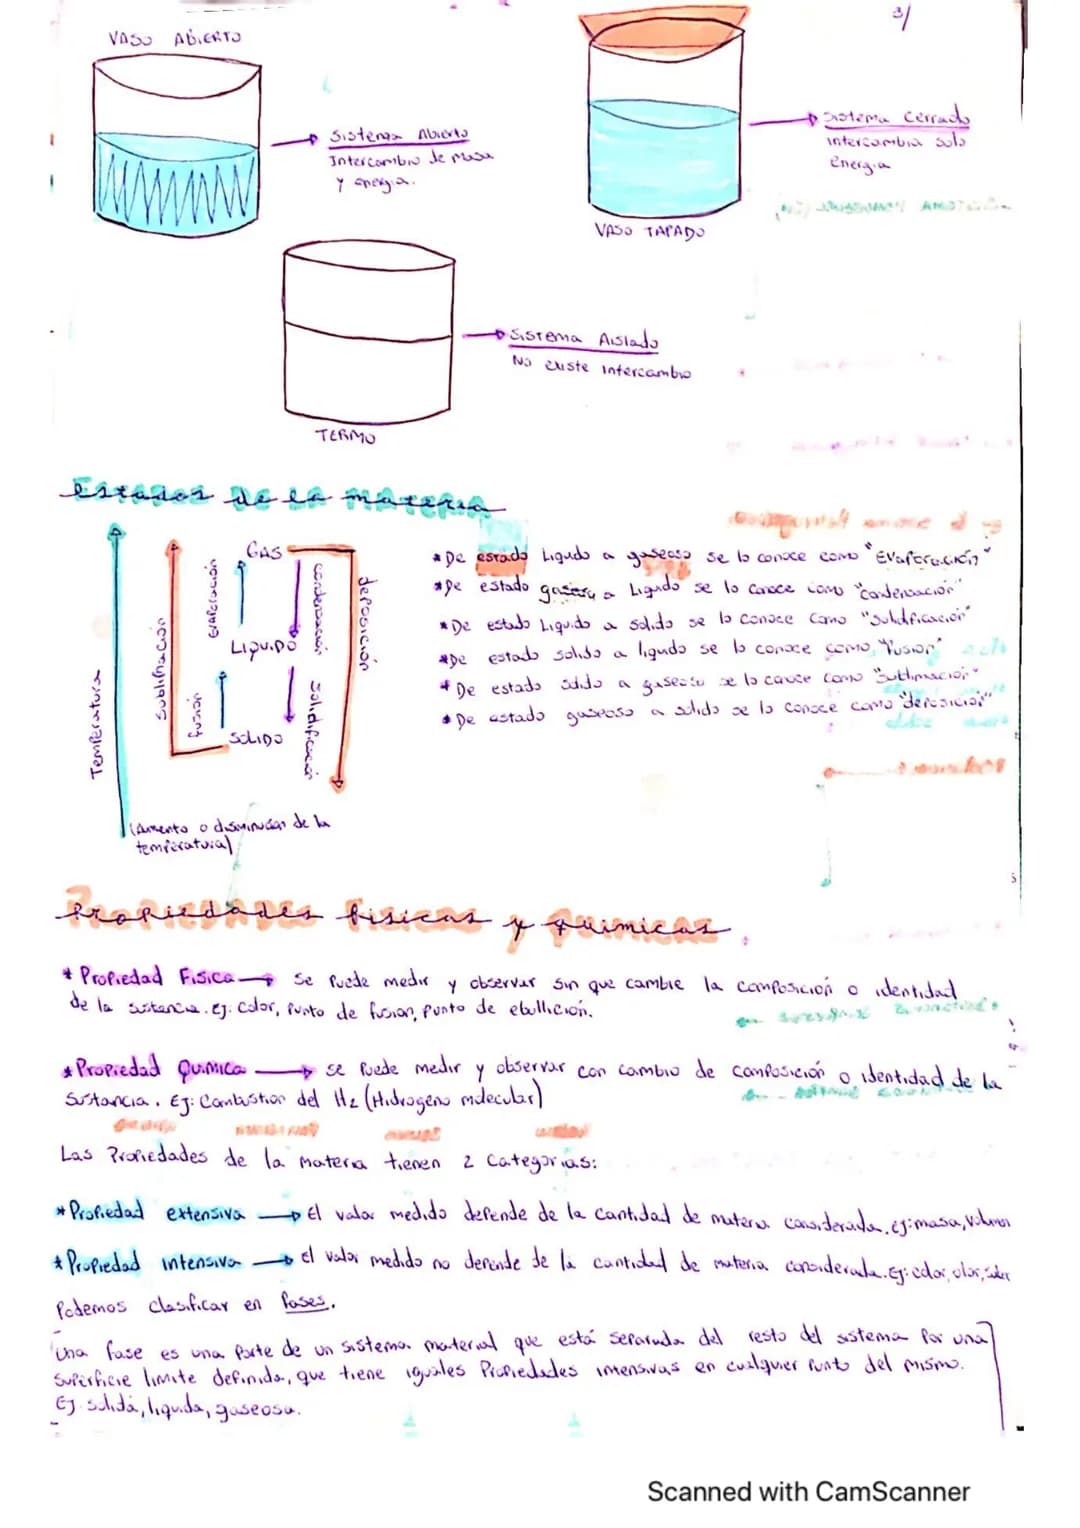 3/
VASO ABIERTO
Sistema Abierto
Intercambio de masa
y energia.
Sistema Cerrado
intercambia solo
Energia
VASO TAPADO
Sistema Aislado
No existe intercambio
TERMO
Estados de la materia
Temperatura
Sublimación
Evaporación
fusión
GAS
LIQUIDO
SOLIDO
condensación
Solidificación
deposición
(Aumento o disminución de la
temperatura)
* De estado Liquido a gaseoso se lo conoce como "Evaporación"
* De estado gaseoso a Liquido se lo conoce como "condensación"
* De estado Liquido a solido se lo conoce como "solidificación"
* De estado solido a liquido se lo conoce como "fusion"
* De estado solido a gaseoso se lo conoce como "Sublimación"
* De estado gaseoso a solido se lo conoce como "deposición"
Propiedades fisicas y quimicas.
* Propiedad Fisica → Se Puede medir y observar sin que cambie la composición o identidad
de la sustancia. Ej: Color, Punto de fusion, Punto de ebullición.
* Propiedad Quimica → se Puede medir y observar con cambio de composición o identidad de la
Sustancia. Ej: Combustion del H2 (Hidrogeno molecular)
Las Propiedades de la materia tienen 2 Categorias:
* Propiedad extensiva → El valor medido depende de la cantidad de materia considerada. ej: masa, Volumen
* Propiedad intensiva → el valor medido no depende de la cantidad de materia considerada. Ej: color, olor, sabor
Podemos clasificar en fases.
Una fase es una Parte de un sistema material que está separada del resto del sistema por una
superficie limite definida, que tiene iguales Propiedades intensivas en cualquier Punto del mismo.
Ej solida, liquida, gaseosa.
Scanned with CamScanner